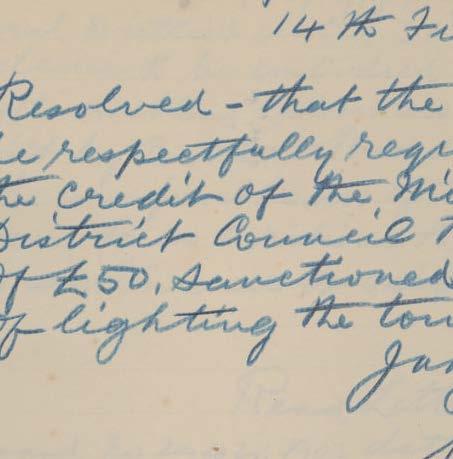 14th
Resolved - that the
be respectfully requ
the credit of the Mi
District Council
of £50, sanctioned
of lighting the tow